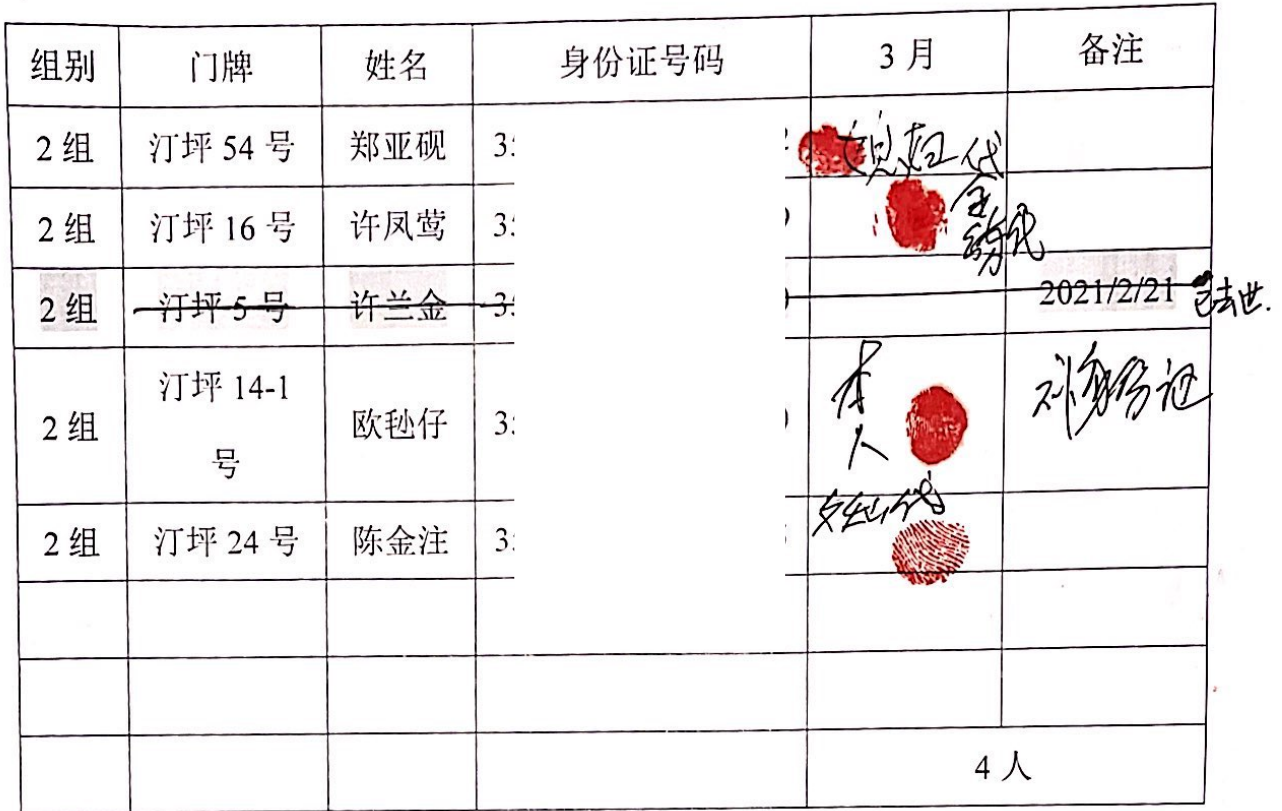 组别 门牌 姓名 身份证号码 3月 备注
2组 汀坪54号 郑亚砚 3 媳妇代
2组 汀坪16号 许凤莺 35 代
2组 汀坪5号 许兰金 3 2021/2/21 已去世.
汀坪14-1
2组 欧毜仔 35 本人 身份证
号
2组 汀坪24号 陈金注 3 代
4人